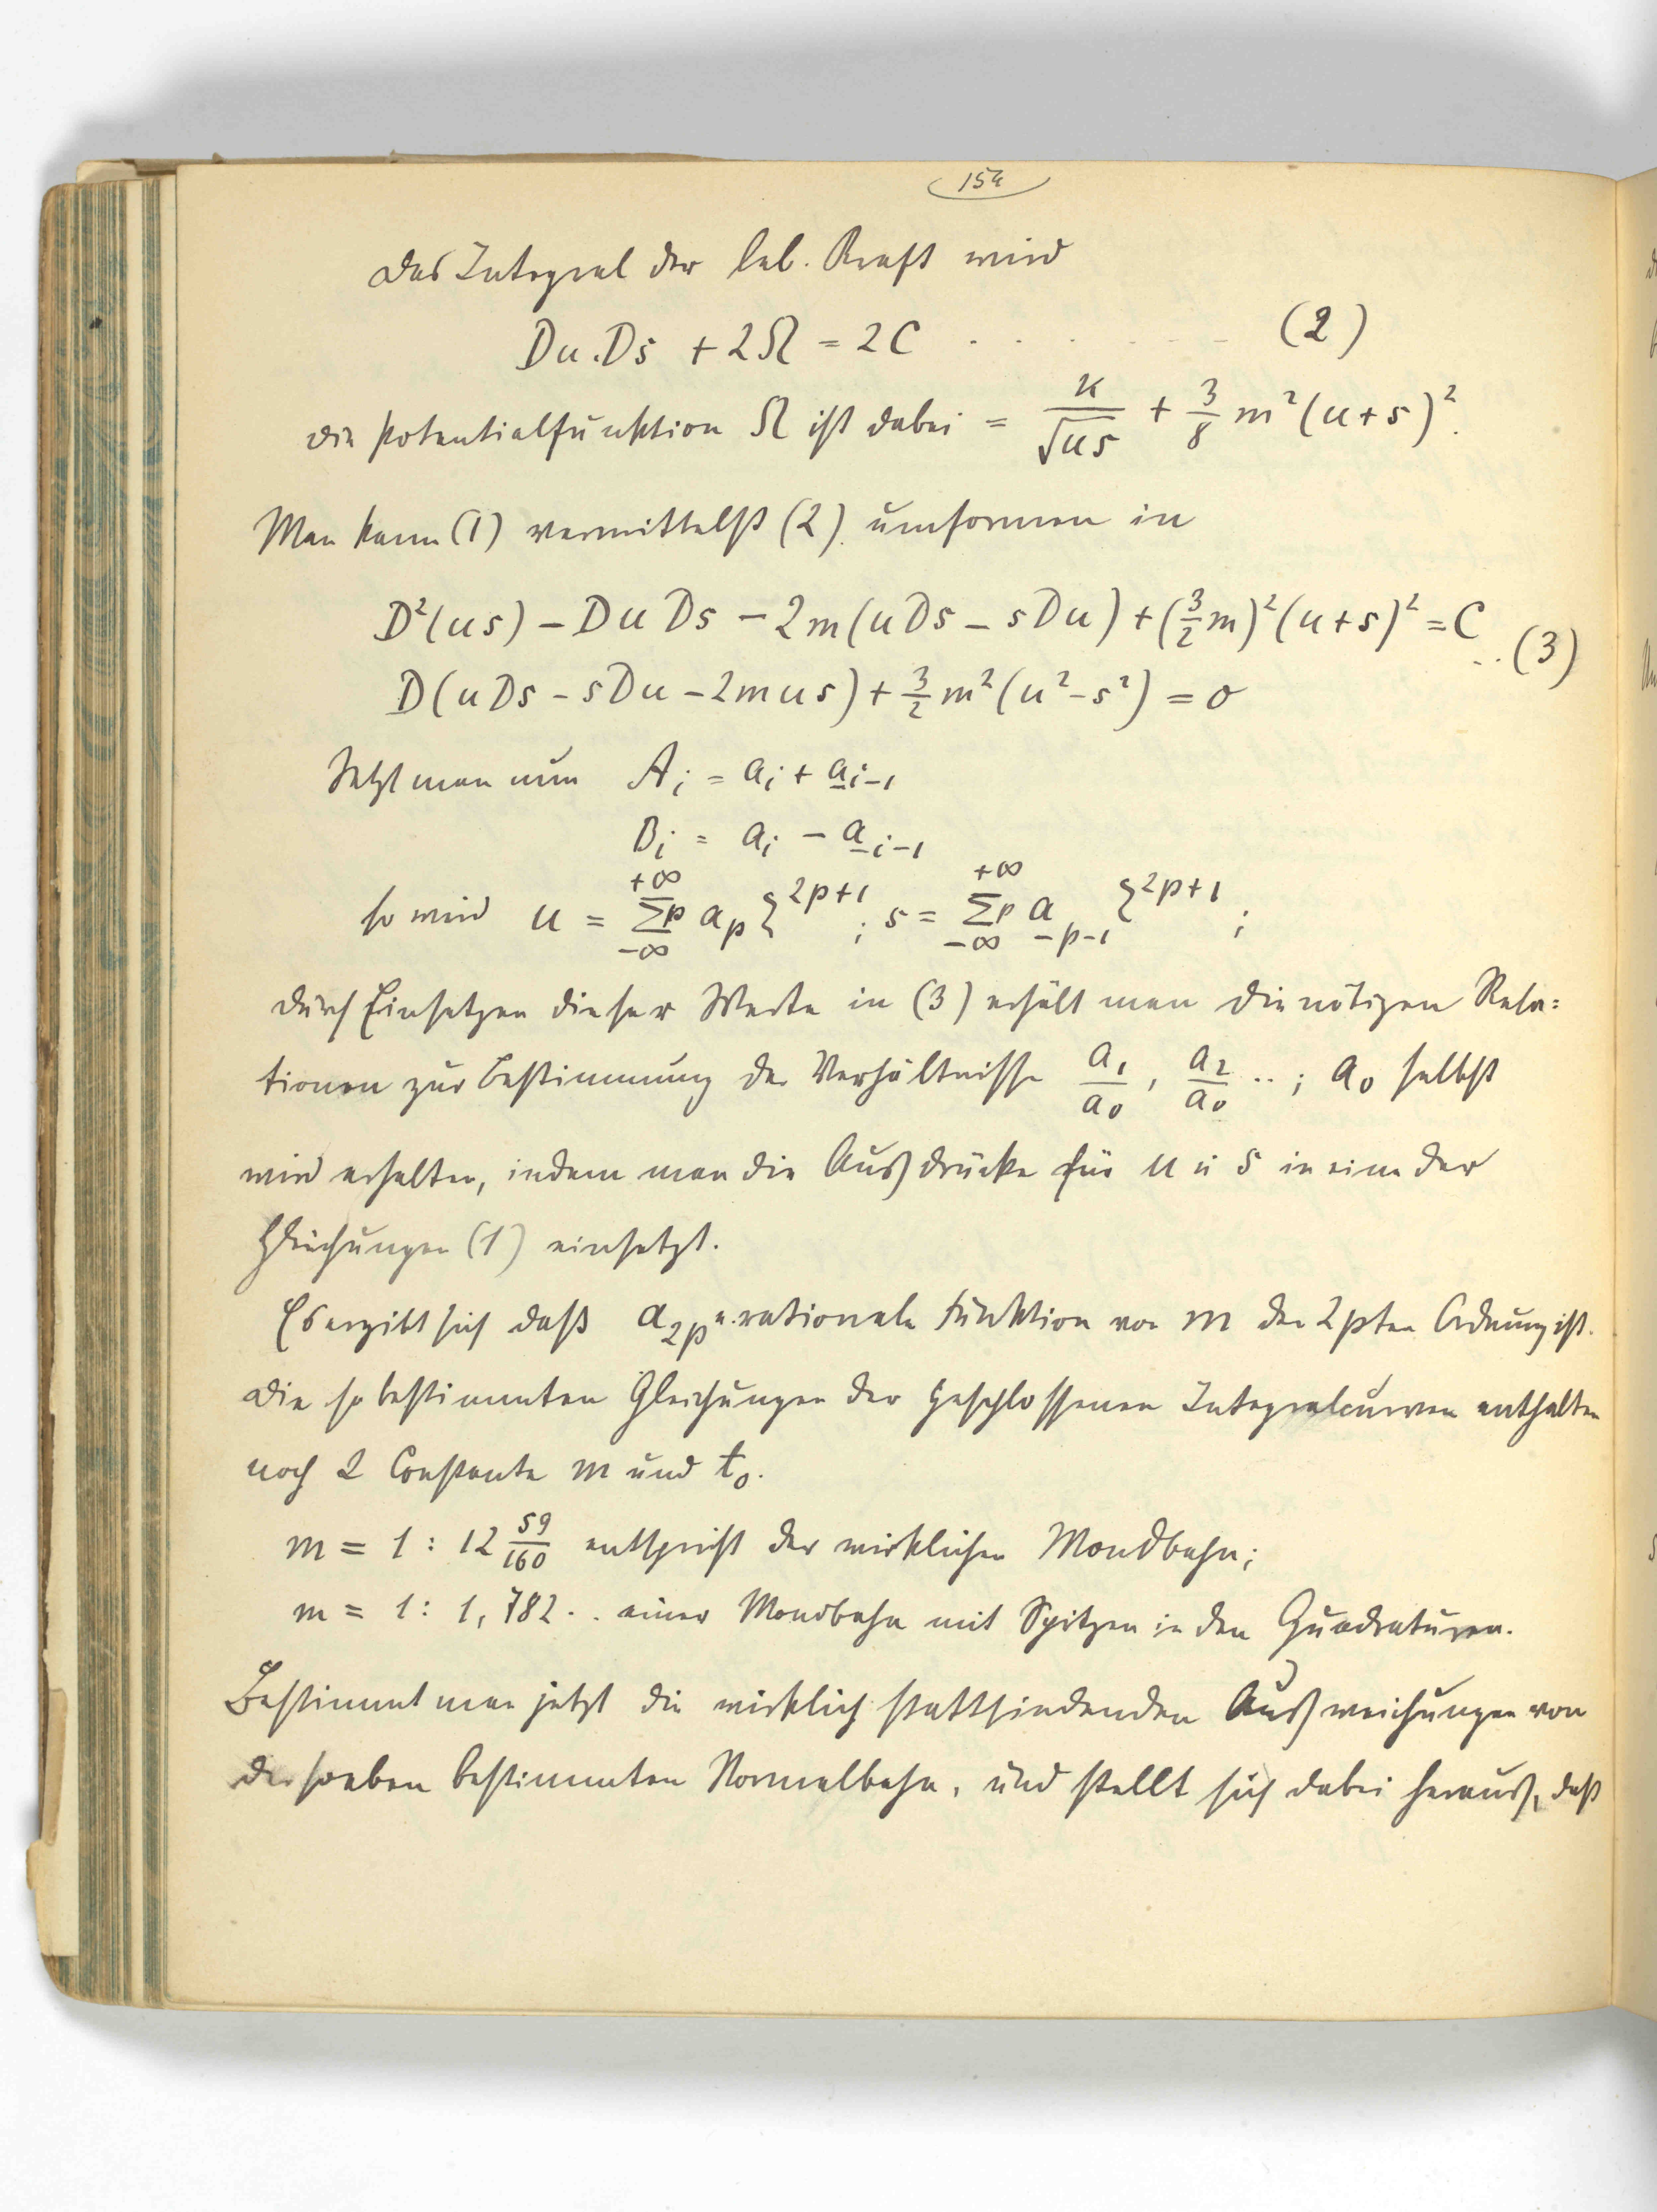 154
Das Integral der leb. Kraft wird
Du.Ds + 2Ω = 2C . . . . . . . (2)
Die Potentialfunktion Ω ist dabei = κ/√us + 3/8 m²(u+s)².
Man kann (1) vermittelst (2) umformen in
D²(us) – Du Ds – 2m(uDs – sDu) + (3/2 m)²(u+s)² = C
D(uDs – sDu – 2mus) + 3/2 m²(u²–s²) = 0 ..(3)
Setzt man nun A_i = a_i + a_{i–1}
B_i = a_i – a_{i–1}
so wird u = Σp_{–∞}^{+∞} a_p ζ^{2p+1}; s = Σp_{–∞}^{+∞} a_{–p–1} ζ^{2p+1};
Durch Einsetzen dieser Werte in (3) erhält man die nötigen Rela=
tionen zur Bestimmung der Verhältnisse a₁/a₀, a₂/a₀ ..; a₀ selbst
wird erhalten, indem man die Ausdrücke für u u s in eine der
Gleichungen (1) einsetzt.
Es ergibt sich daß a_{2p} e. rationale Funktion von m der 2pten Ordnung ist.
Die so bestimmten Gleichungen der geschlossenen Integralcurven enthalten
noch 2 Constante m und t₀.
m = 1 : 12 59/160 entspricht der wirklichen Mondbahn;
m = 1 : 1,782.. einer Mondbahn mit Spitzen in den Quadraturen.
Bestimmt man jetzt die wirklich stattfindenden Ausweichungen von
der soeben bestimmten Normalbahn, und stellt sich dabei heraus, daß